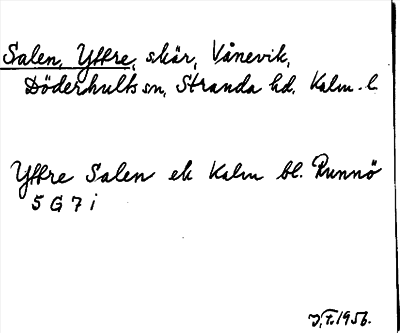 Salen, Yttre, skär, Vånevik,
Döderhults sn, Stranda hd. Kalm. l.
Yttre Salen ek Kalm bl. Runnö
5 G 7 i
J.F. 1956.